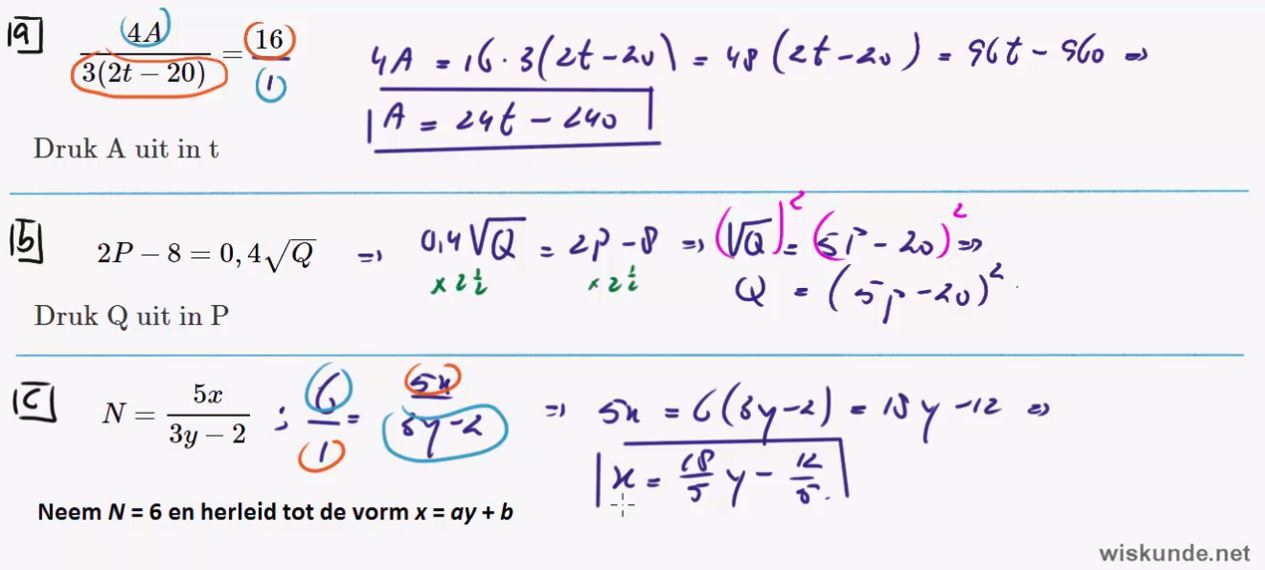 1a 4A / 3(2t − 20) = 16 / 1
4A = 16 · 3(2t − 20) = 48(2t − 20) = 96t − 960 ⇒
A = 24t − 240
Druk A uit in t
1b 2P − 8 = 0,4√Q ⇒ 0,4√Q = 2P − 8 ⇒ (√Q)² = (5P − 20)² ⇒
× 2½ × 2½ Q = (5p − 20)²
Druk Q uit in P
1c N = 5x / 3y − 2 ; 6 / 1 = 5x / 3y − 2 ⇒ 5x = 6(3y − 2) = 18y − 12 ⇒
x = 18/5 y − 12/5.
Neem N = 6 en herleid tot de vorm x = ay + b
wiskunde.net